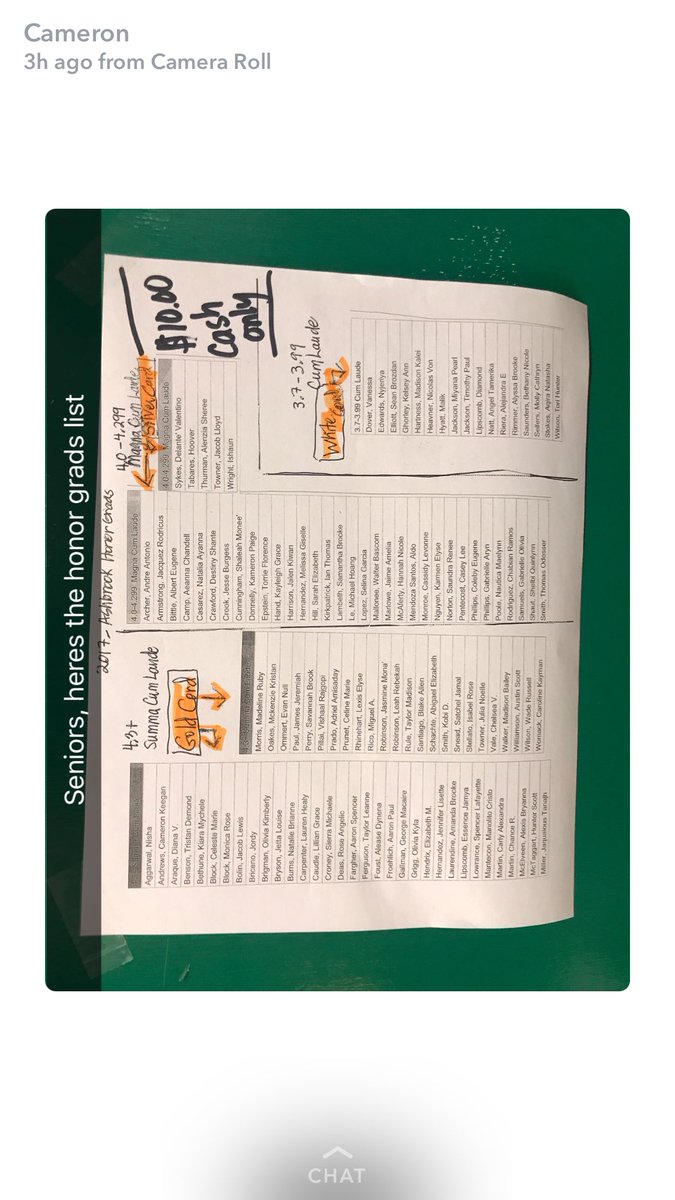 Cameron
3h ago from Camera Roll
Seniors, heres the honor grads list
2017 - Ashbrook Honor Grads
4.3+
Summa Cum Laude
Gold Cord
Aggarwal, Nisha
Andrews, Cameron Keegan
Araque, Diana V.
Benson, Tristan Demond
Bethune, Kiara Mychele
Block, Celeste Marie
Block, Monica Rose
Bolin, Jacob Lewis
Briceno, Jordy
Brigman, Olivia Kimberly
Bryson, Jetta Louise
Burns, Natalie Brianne
Carpenter, Lauren Healy
Caudle, Lillian Grace
Croney, Sierra Michaele
Deas, Rose Angelic
Fargher, Aaron Spencer
Ferguson, Taylor Leanne
Foust, Alease Dyrana
Froehlich, Aaron Paul
Galtman, George Macaire
Grigg, Olivia Kyla
Hendrix, Elizabeth M.
Hernandez, Jennifer Lisette
Laurendine, Amanda Brooke
Lipscomb, Essence Jamya
Lowrance, Spencer Lafayette
Mantecon, Manolito Cristo
Martin, Carly Alexandra
Martin, Chance R.
McElveen, Alexis Bryanna
McTaggart, Hunter Scott
Miller, Jaiquious
Morris, Madeline Ruby
Oakes, Mckenzie Kristan
Ommert, Evan Null
Paul, James Jeremiah
Perry, Savannah Brook
Pillai, Vishaal Ragopi
Prado, Adriel Amisaday
Prunet, Celine Marie
Rhinehart, Lexis Elyse
Rico, Miguel A.
Robinson, Jasmine Mona'
Robinson, Leah Rebekah
Rule, Taylor Madison
Santiago, Blake Allen
Schachte, Abigael Elizabeth
Smith, Kobi D.
Snead, Satchel Jamal
Stellato, Isabel Rose
Towner, Julia Noelle
Valle, Chelsea V.
Walker, Madison Bailey
Williamson, Austin Scott
Willson, Wade Russell
Womack, Caroline Kayman
4.0-4.299
Magna Cum Laude
Silver Cord
4.0-4.299 Magna Cum Laude
Archer, Andre Antonio
Armstrong, Jacquez Rodricus
Bittle, Albert Eugene
Camp, Aeanna Chandell
Casarez, Natalia Ayanna
Crawford, Destiny Shante
Crook, Jesse Burgess
Cunningham, Shaleah Monee'
Donnelly, Kameron Paige
Epstein, Torrie Florence
Hand, Kayleigh Grace
Harrison, Jalon Kiwan
Hernandez, Melissa Giselle
Hill, Sarah Elizabeth
Kirkpatrick, Ian Thomas
Lambeth, Samantha Brooke
Le, Michael Hoang
Lopez, Selina Garcia
Mallonee, Walter Bascom
Marlowe, Jaime Amelia
McAferty, Hannah Nicole
Mendoza Santos, Aldo
Monroe, Cassidy Levonne
Nguyen, Karmen Elyse
Norton, Saundra Renee
Pentecost, Casey Lee
Phillips, Coleby Eugene
Phillips, Gabrielle Aryn
Poole, Nautica Maelynn
Rodriguez, Chabain Ramos
Samuels, Gabrielle Olivia
Shaut, Shelbie Quinlynn
Smith, Thomas Odesser
4.0-4.299 Magna Cum Laude
Sykes, Delante' Valentino
Tabares, Hoover
Thurman, Alenzia Sheree
Towner, Jacob Lloyd
Wright, Ishaun
$10.00
Cash
only
3.7-3.99
Cum Laude
White Cord
3.7-3.99 Cum Laude
Dover, Vanessa
Edwards, Nyjeriya
Elliott, Sean Brozdian
Ghorley, Kelsey Ann
Harkness, Madison Kalei
Heavner, Nicolas Von
Hyatt, Malik
Jackson, Miyana Pearl
Jackson, Timothy Paul
Lipscomb, Diamond
Natt, Angel Tamerika
Riera, Alejandra E
Rimmer, Alyssa Brooke
Saunders, Bethany Nicole
Sellers, Molly Cathryn
Stokes, Aigra Natasha
Wilson, Tori Hunter
CHAT